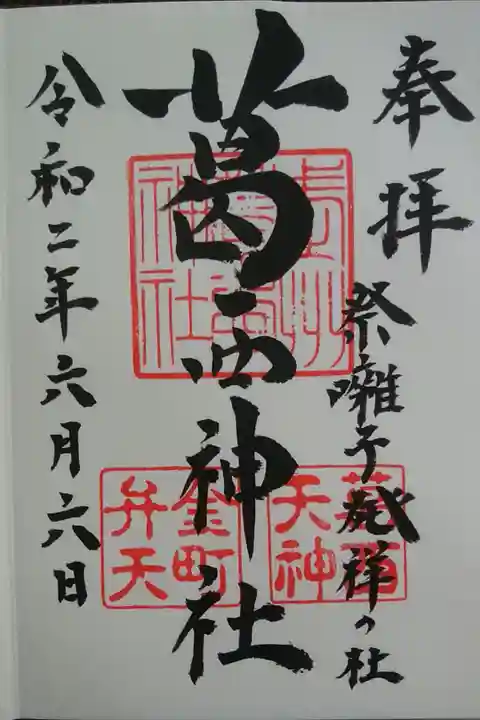 奉拝
祭囃子発祥の社
葛西神社
令和二年六月六日
天神
金町
弁天